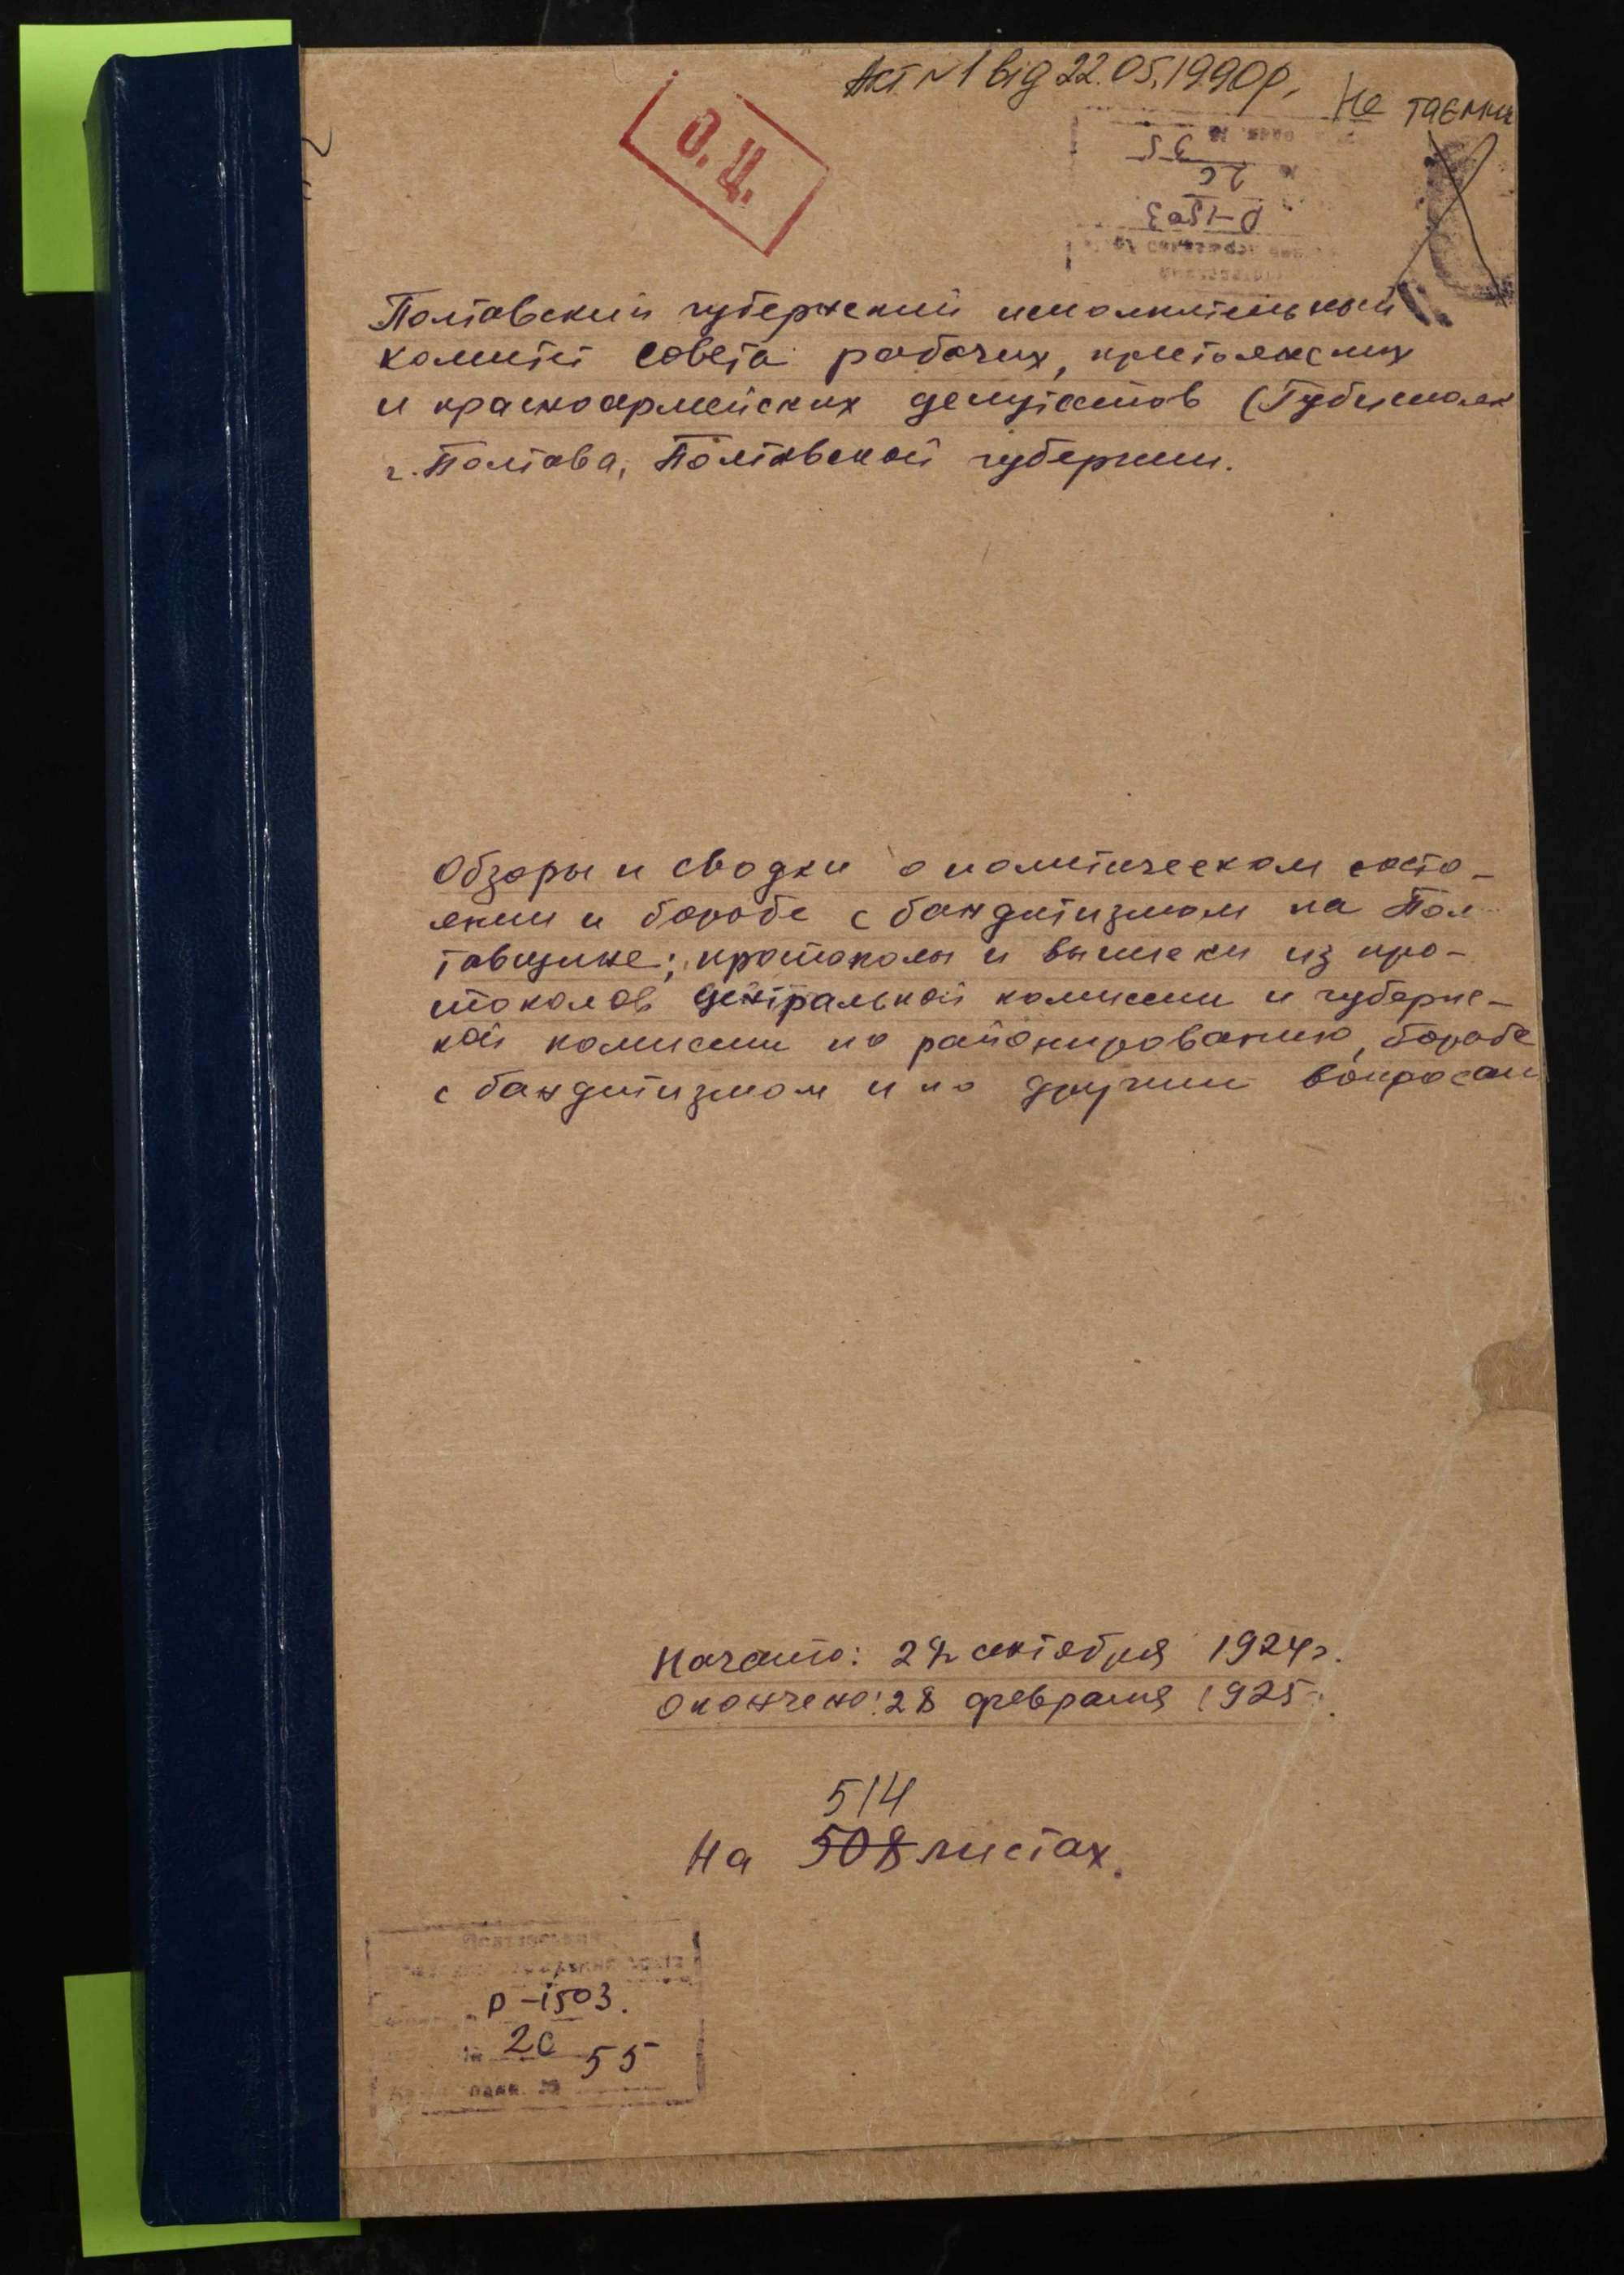 Акт №1 від 22.05.1990р.
Не таємно
О. Ц.
55
20
Р-1503
Полтавский губернский исполнительный
комитет совета рабочих, крестьянских
и красноармейских депутатов (Губисполк
г. Полтава, Полтавской губернии.
Обзоры и сводки о политическом состо-
янии и борьбе с бандитизмом на Пол-
тавщине; протоколы и выписки из про-
токолов центральной комиссии и губернс-
кой комиссии по районированию, борьбе
с бандитизмом и по другим вопросам
Начато: октября 1924г.
Окончено: 28 февраля 1925г.
514
На 508 листах.
Р-1503.
№ 20
55